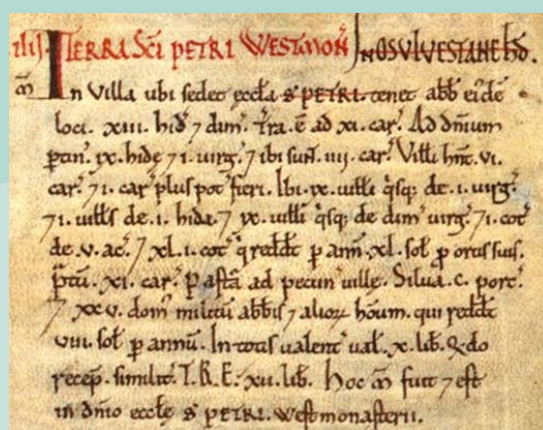 .iiij. TERRA SC̄I PETRI WESTMON̄. IN OSULVESTANE HD̄.
m̄ In Villa ubi sedet æccła S PETRI. tenet abb̄ ei᷎dē
loci. xiii. hid̄ ⁊ dim̄. Tra. ē ad xi. car᷎. Ad dn̄ium
ptin᷎. ix. hidę ⁊ i. uirg᷎. ⁊ ibi sun̄t. iiij. car᷎. Villi hn̄t. vi.
car᷎. ⁊ i. car᷎ plus pot᷎ fieri. Ibi. ix. uilli q̊sq; de. i. uirg᷎.
⁊ i. uill̄s de. i. hida. ⁊ ix. uilli q̊sq; de dim̄ uirg᷎. ⁊ i. cot᷎
de. v. ac᷎. ⁊ xl. i. cot᷎ q̇ reddt̄ p ann̄. xl. sol᷎ p ortis suis.
p̄tū. xi. car᷎. Pastā ad pecun᷎ uille. Silua. c. porc᷎.
⁊ xxv. dom᷎ militū abb̄is ⁊ alioꝝ hōum. qui reddt̄
viii. sol᷎ p annū. In totis ualent᷎ ual᷎. x. lib᷎. Q̄do
recep̄. similit᷎. T. R. E. xii. lib᷎. Hoc m̄ fuit ⁊ est
in dn̄io æccłę S PETRI. westmonasterii.